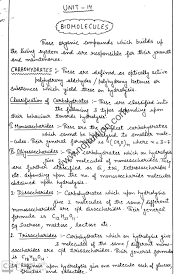 UNIT - 14
BIOMOLECULES
These organic compounds which builds up
the living system and are responsible for their growth
and maintenance.
CARBOHYDRATES :- These are defined as optically active
polyhydroxy aldehydes / polyhydroxy ketones or
substances which yield these on hydrolysis.
Classification of Carbohydrates :- These are classified into
the following 3 types depending upon
their behaviour towards hydrolysis
1. Monosaccharides :- These are the simplest carbohydrates
which cannot be hydrolysed to smaller
molecules. Their general formula is
Oligosaccharides :- carbohydrates which on hydrolysis
give molecules of monosaccharides
are further classified as di, tri,
etc. depending upon the no. of monosaccharide molecules
obtained upon hydrolysis.
Disaccharides :- Carbohydrates which upon hydrolysis
give 2 molecules of the same / different
monosaccharides are called disaccharides. Their general
formula is C12H22O11
Eg Sucrose, maltose, lactose etc.
Trisaccharides :- Carbohydrates which on hydrolysis give
3 molecules of the same / different
saccharides are called Trisaccharides. Their general
formula is
upon hydrolysis give one molecule each of glucose